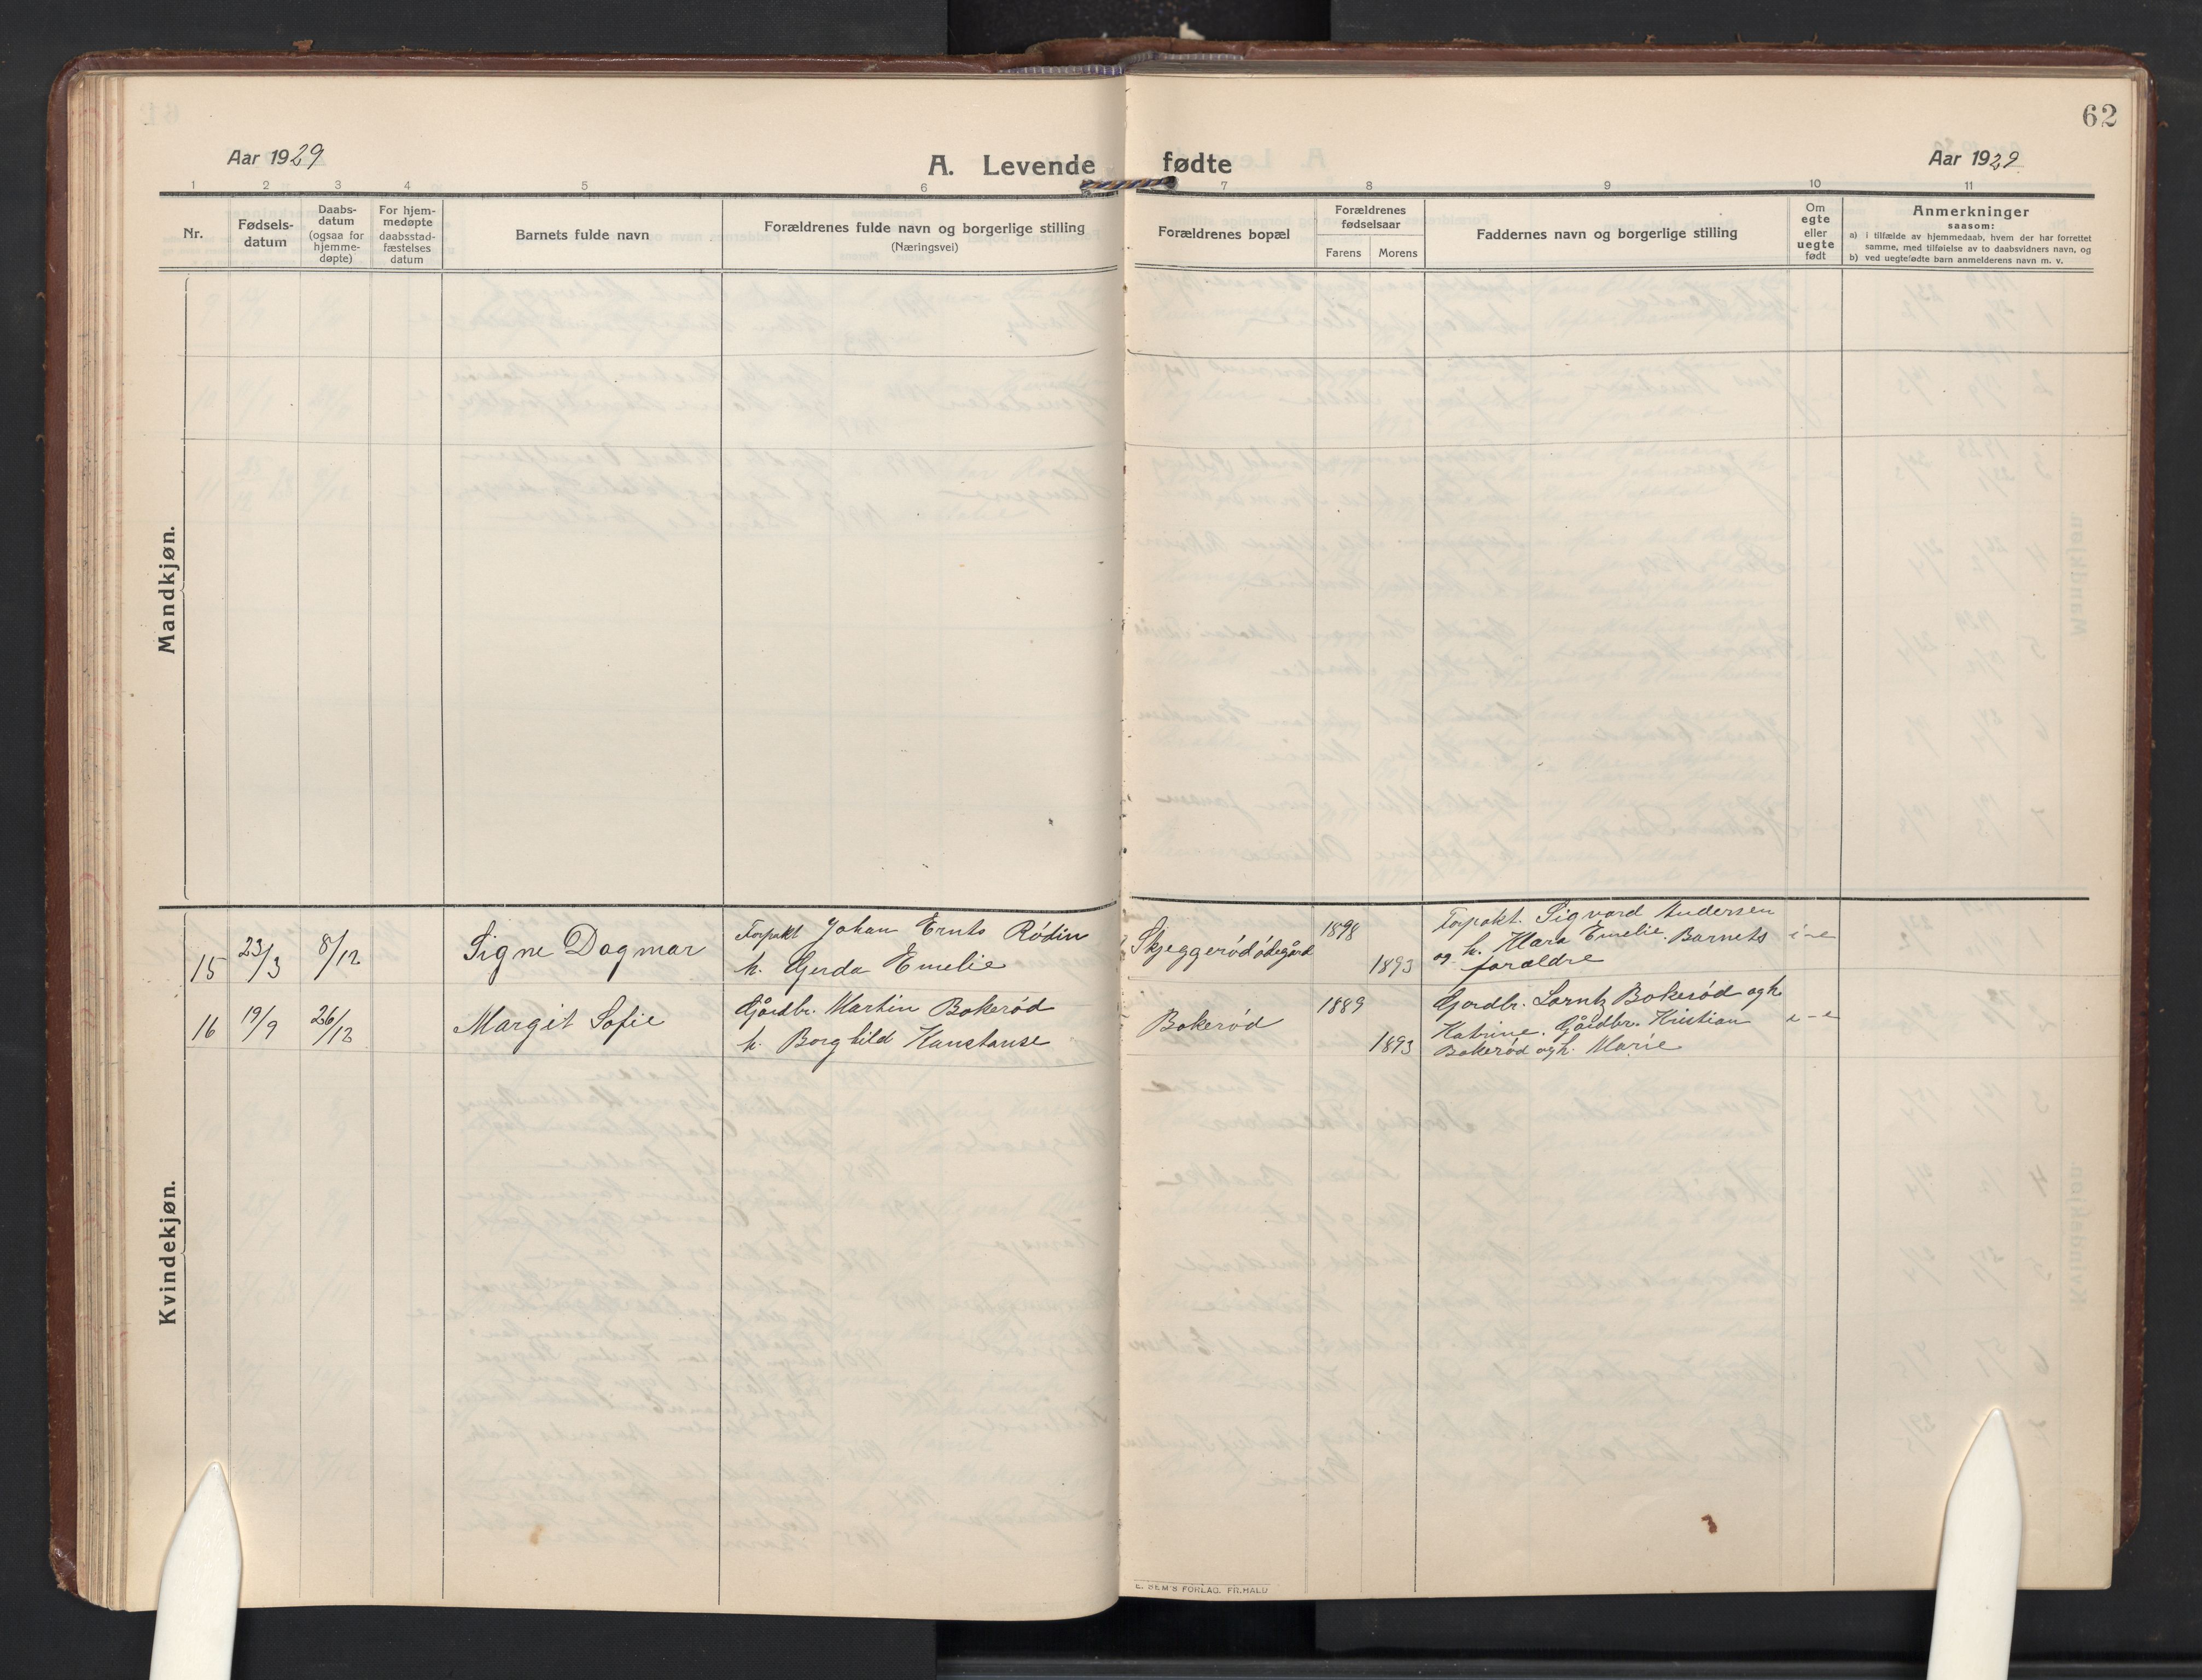 62
Aar 1929
A. Levende fødte
Aar 1929
1 2 3 4 5 6 7 8 9 10 11
Nr.
Fødsels-
datum
Daabs-
datum
(ogsaa for
hjemme-
døpte)
For hjem-
medøpte
daabsstad-
fæstelses
datum
Barnets fulde navn
Forældrenes fulde navn og borgerlige stilling
(Næringsvei)
Forældrenes bopæl
Forældrenes
fødselsaar
Farens Morens
Faddernes navn og borgerlige stilling
Om
egte
eller
uegte
født
Anmerkninger
saasom:
a) i tilfælde av hjemmedaab, hvem der har forrettet
samme, med tilføielse av to daabsvidners navn, og
b) ved uegtefødte barn anmelderens navn m. v.
Mandkjøn.
Kvindekjøn.
15 23/3 8/12 Signe Dagmar
Forpakt Johan Ernts Rödin
h. Gerda Emelie
Skjeggerødødegård
1898
1893
Forpakt. Sigvard Andersen
og h. Klara Emelie. Barnets
forældre
16 19/9 26/12 Margit Sofie
Gårdbr. Martin Bokerød
h. Borghild Konstanse
Bokerød
1889
1893
Gardbr. Lorntz Bokerød og h.
Katrine. Gårdbr. Kristian
Bokerød og h. Marie
e-e
E. SEM'S FORLAG. FR.HALD